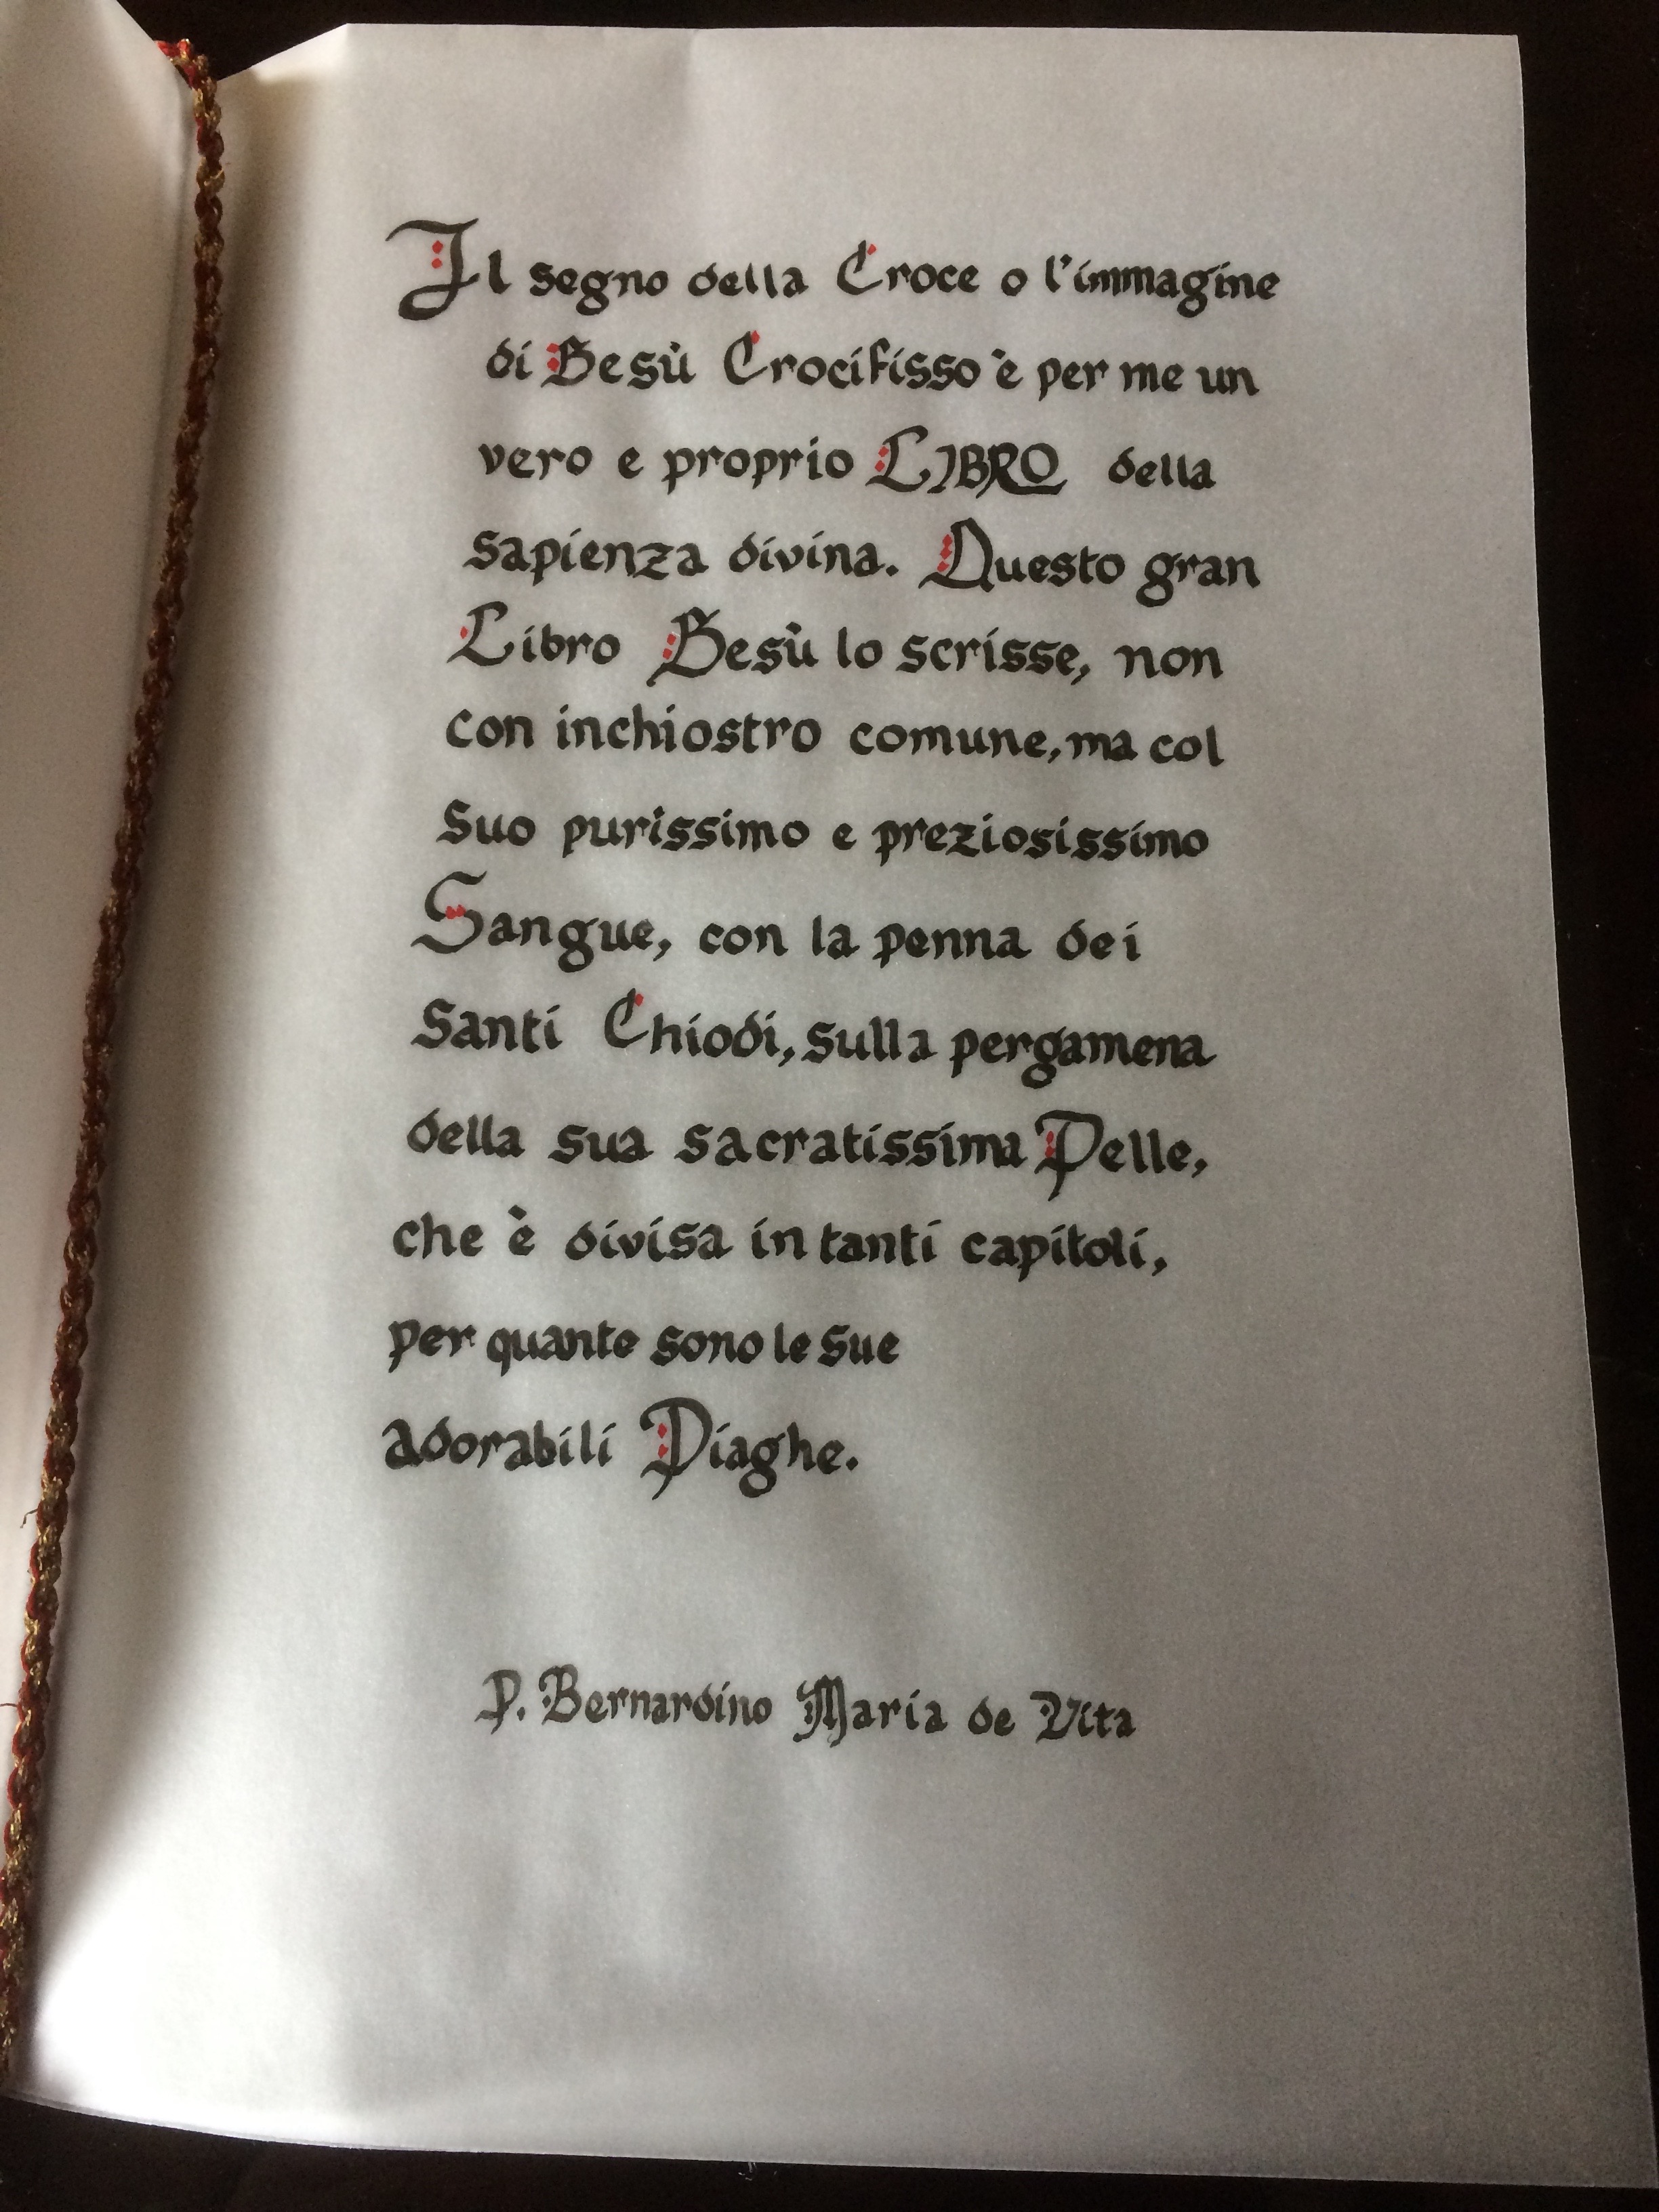 Il segno della Croce o l'immagine
di Gesù Crocifisso è per me un
vero e proprio LIBRO della
sapienza divina. Questo gran
Libro Gesù lo scrisse, non
con inchiostro comune, ma col
Suo purissimo e preziosissimo
Sangue, con la penna dei
Santi Chiodi, sulla pergamena
della sua sacratissima Pelle,
che è divisa in tanti capitoli,
per quante sono le Sue
adorabili Piaghe.
P. Bernardino Maria de Vita